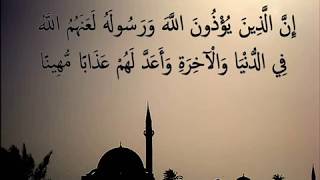 إِنَّ الَّذِينَ يُؤْذُونَ اللَّهَ وَرَسُولَهُ لَعَنَهُمُ اللَّهُ
فِي الدُّنْيَا وَالْآخِرَةِ وَأَعَدَّ لَهُمْ عَذَابًا مُّهِينًا